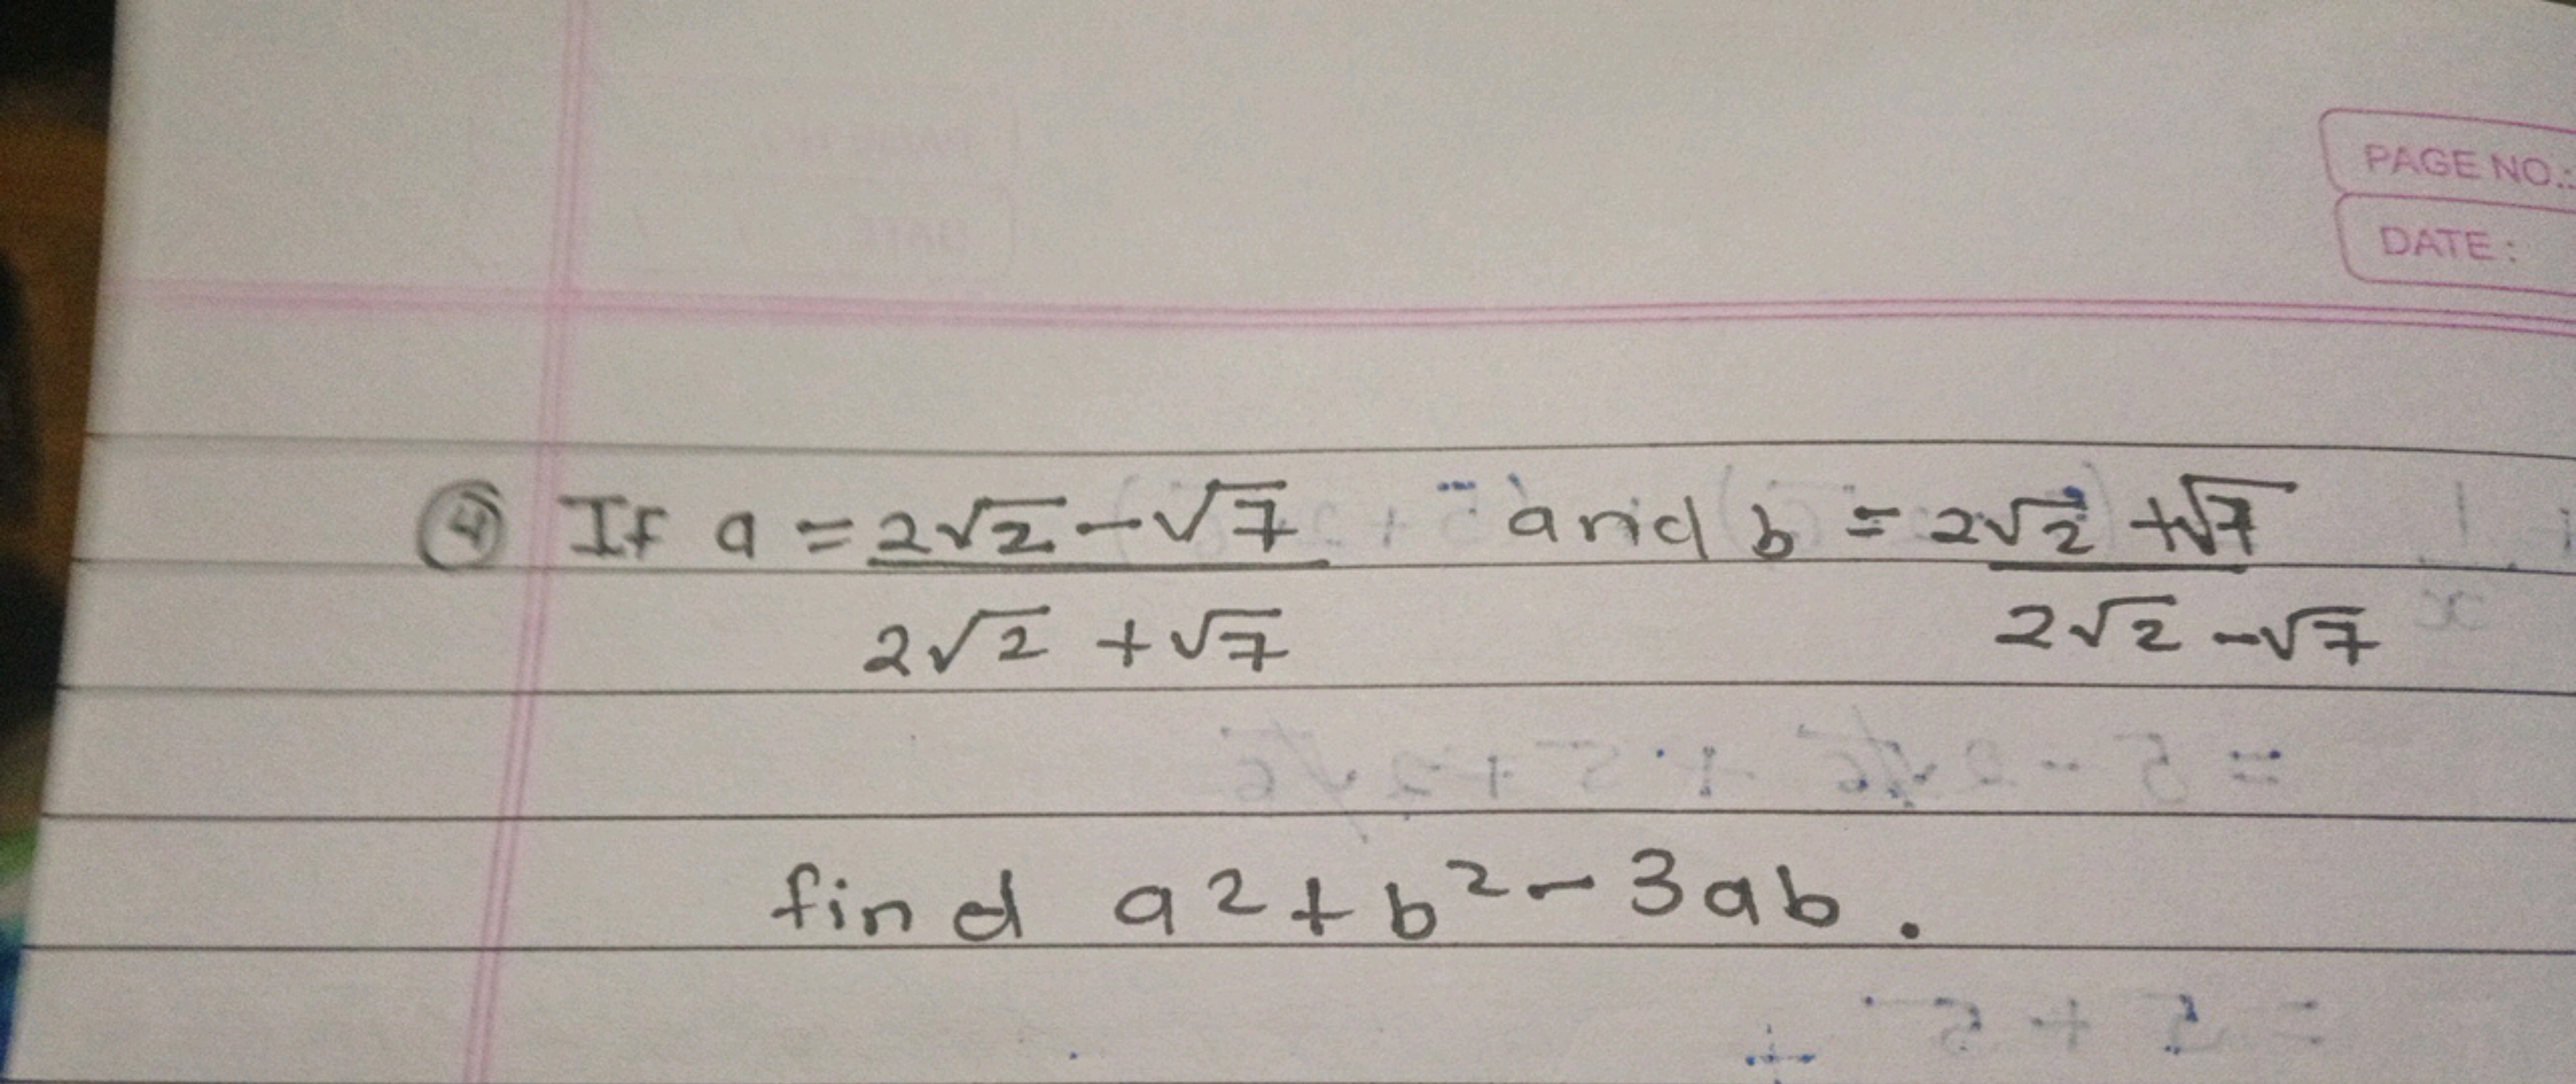 PAGE NO.:
DATE :
④ If a = 2√2 - √7 / 2√2 + √7 and b = 2√2 + √7 / 2√2 - √7
find a2 + b² - 3ab.